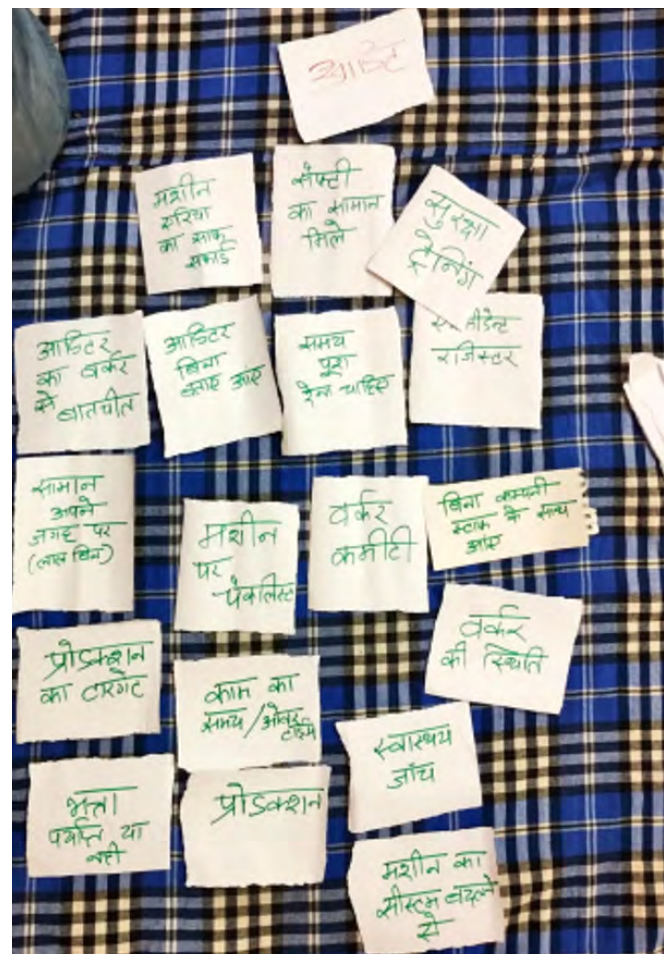 आडिट
मशीन
एरिया
का साफ
सफाई
सेफ्टी
का सामान
मिले
सुरक्षा
ट्रेनिंग
आडिटर
का वर्कर
से
बातचीत
आडिटर
बिना
बताए आए
समय
पूरा
देना चाहिए
एक्सीडेन्ट
रजिस्टर
सामान
अपने
जगह पर
(लाल बिन)
मशीन
पर
चेकलिस्ट
वर्कर
कमीटी
बिना कम्पनी
स्टाफ के साथ
आए
प्रोडक्शन
का टारगेट
काम का
समय/ओवर
टाईम
वर्कर
की स्थिति
स्वास्थय
जाँच
भत्ता
पर्याप्त या
नही
प्रोडक्शन
मशीन का
सीस्टम बदलने
से